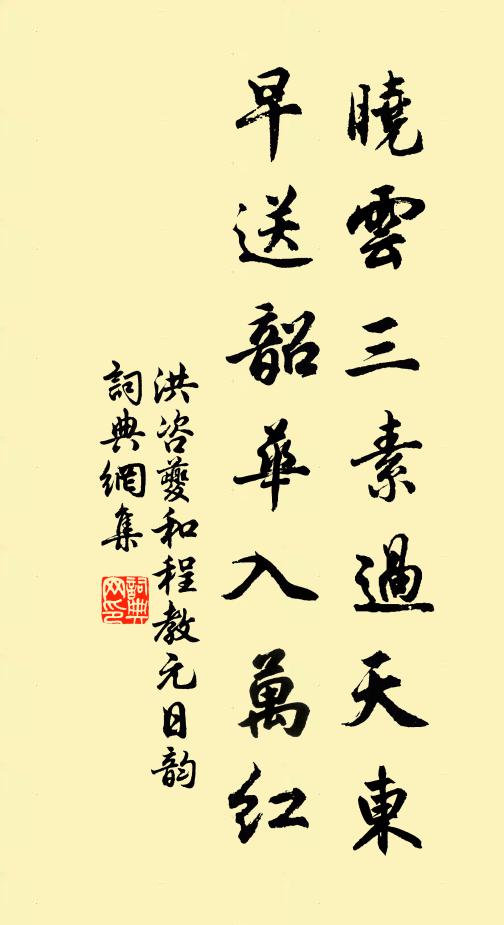 曉雲三素過天東
早送韶華入萬紅
洪咨夔和程教元日韵
詞典網集
詞典
网印